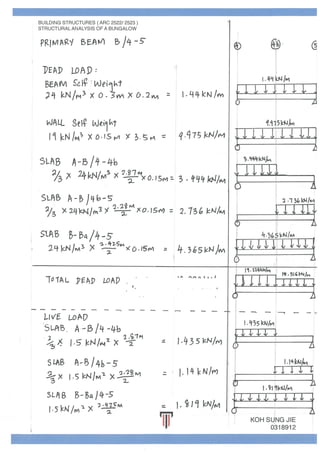 BUILDING STRUCTURES ( ARC 2522/ 2523 )
STRUCTURAL ANALYSIS OF A BUNGALOW
PRIMARY BEAM B/4-5
4 4b 5
DEAD LOAD:
BEAM Self Weight
24 kN/m³ x 0.3m x 0.2m = 1.44 kN/m
1.44 kN/m
WALL Self Weight
19 kN/m³ x 0.15m x 3.5m = 9.975 kN/m
9.975 kN/m
SLAB A-B/4-4b
2/3 x 24kN/m³ x 2.87m/2 x 0.15m = 3.444 kN/m
3.444 kN/m
SLAB A-B/4b-5
2/3 x 24kN/m³ x 2.28m/2 x 0.15m = 2.736 kN/m
2.736 kN/m
SLAB B-Ba/4-5
24kN/m³ x 2.425m/2 x 0.15m = 4.365 kN/m
4.365 kN/m
TOTAL DEAD LOAD
18.516 kN/m
LIVE LOAD
SLAB A-B/4-4b
2/3 x 1.5 kN/m² x 2.87m/2 = 1.435 kN/m
1.435 kN/m
SLAB A-B/4b-5
2/3 x 1.5 kN/m² x 2.28m/2 = 1.14 kN/m
1.14 kN/m
SLAB B-Ba/4-5
1.5 kN/m² x 2.425m/2 = 1.819 kN/m
1.819 kN/m
KOH SUNG JIE
0318912